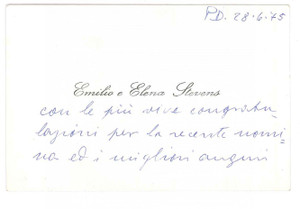 PD. 28·6·75
Emilio e Elena Stevens
con le più vive congratu=
lazioni per la recente nomi=
na ed i migliori auguri